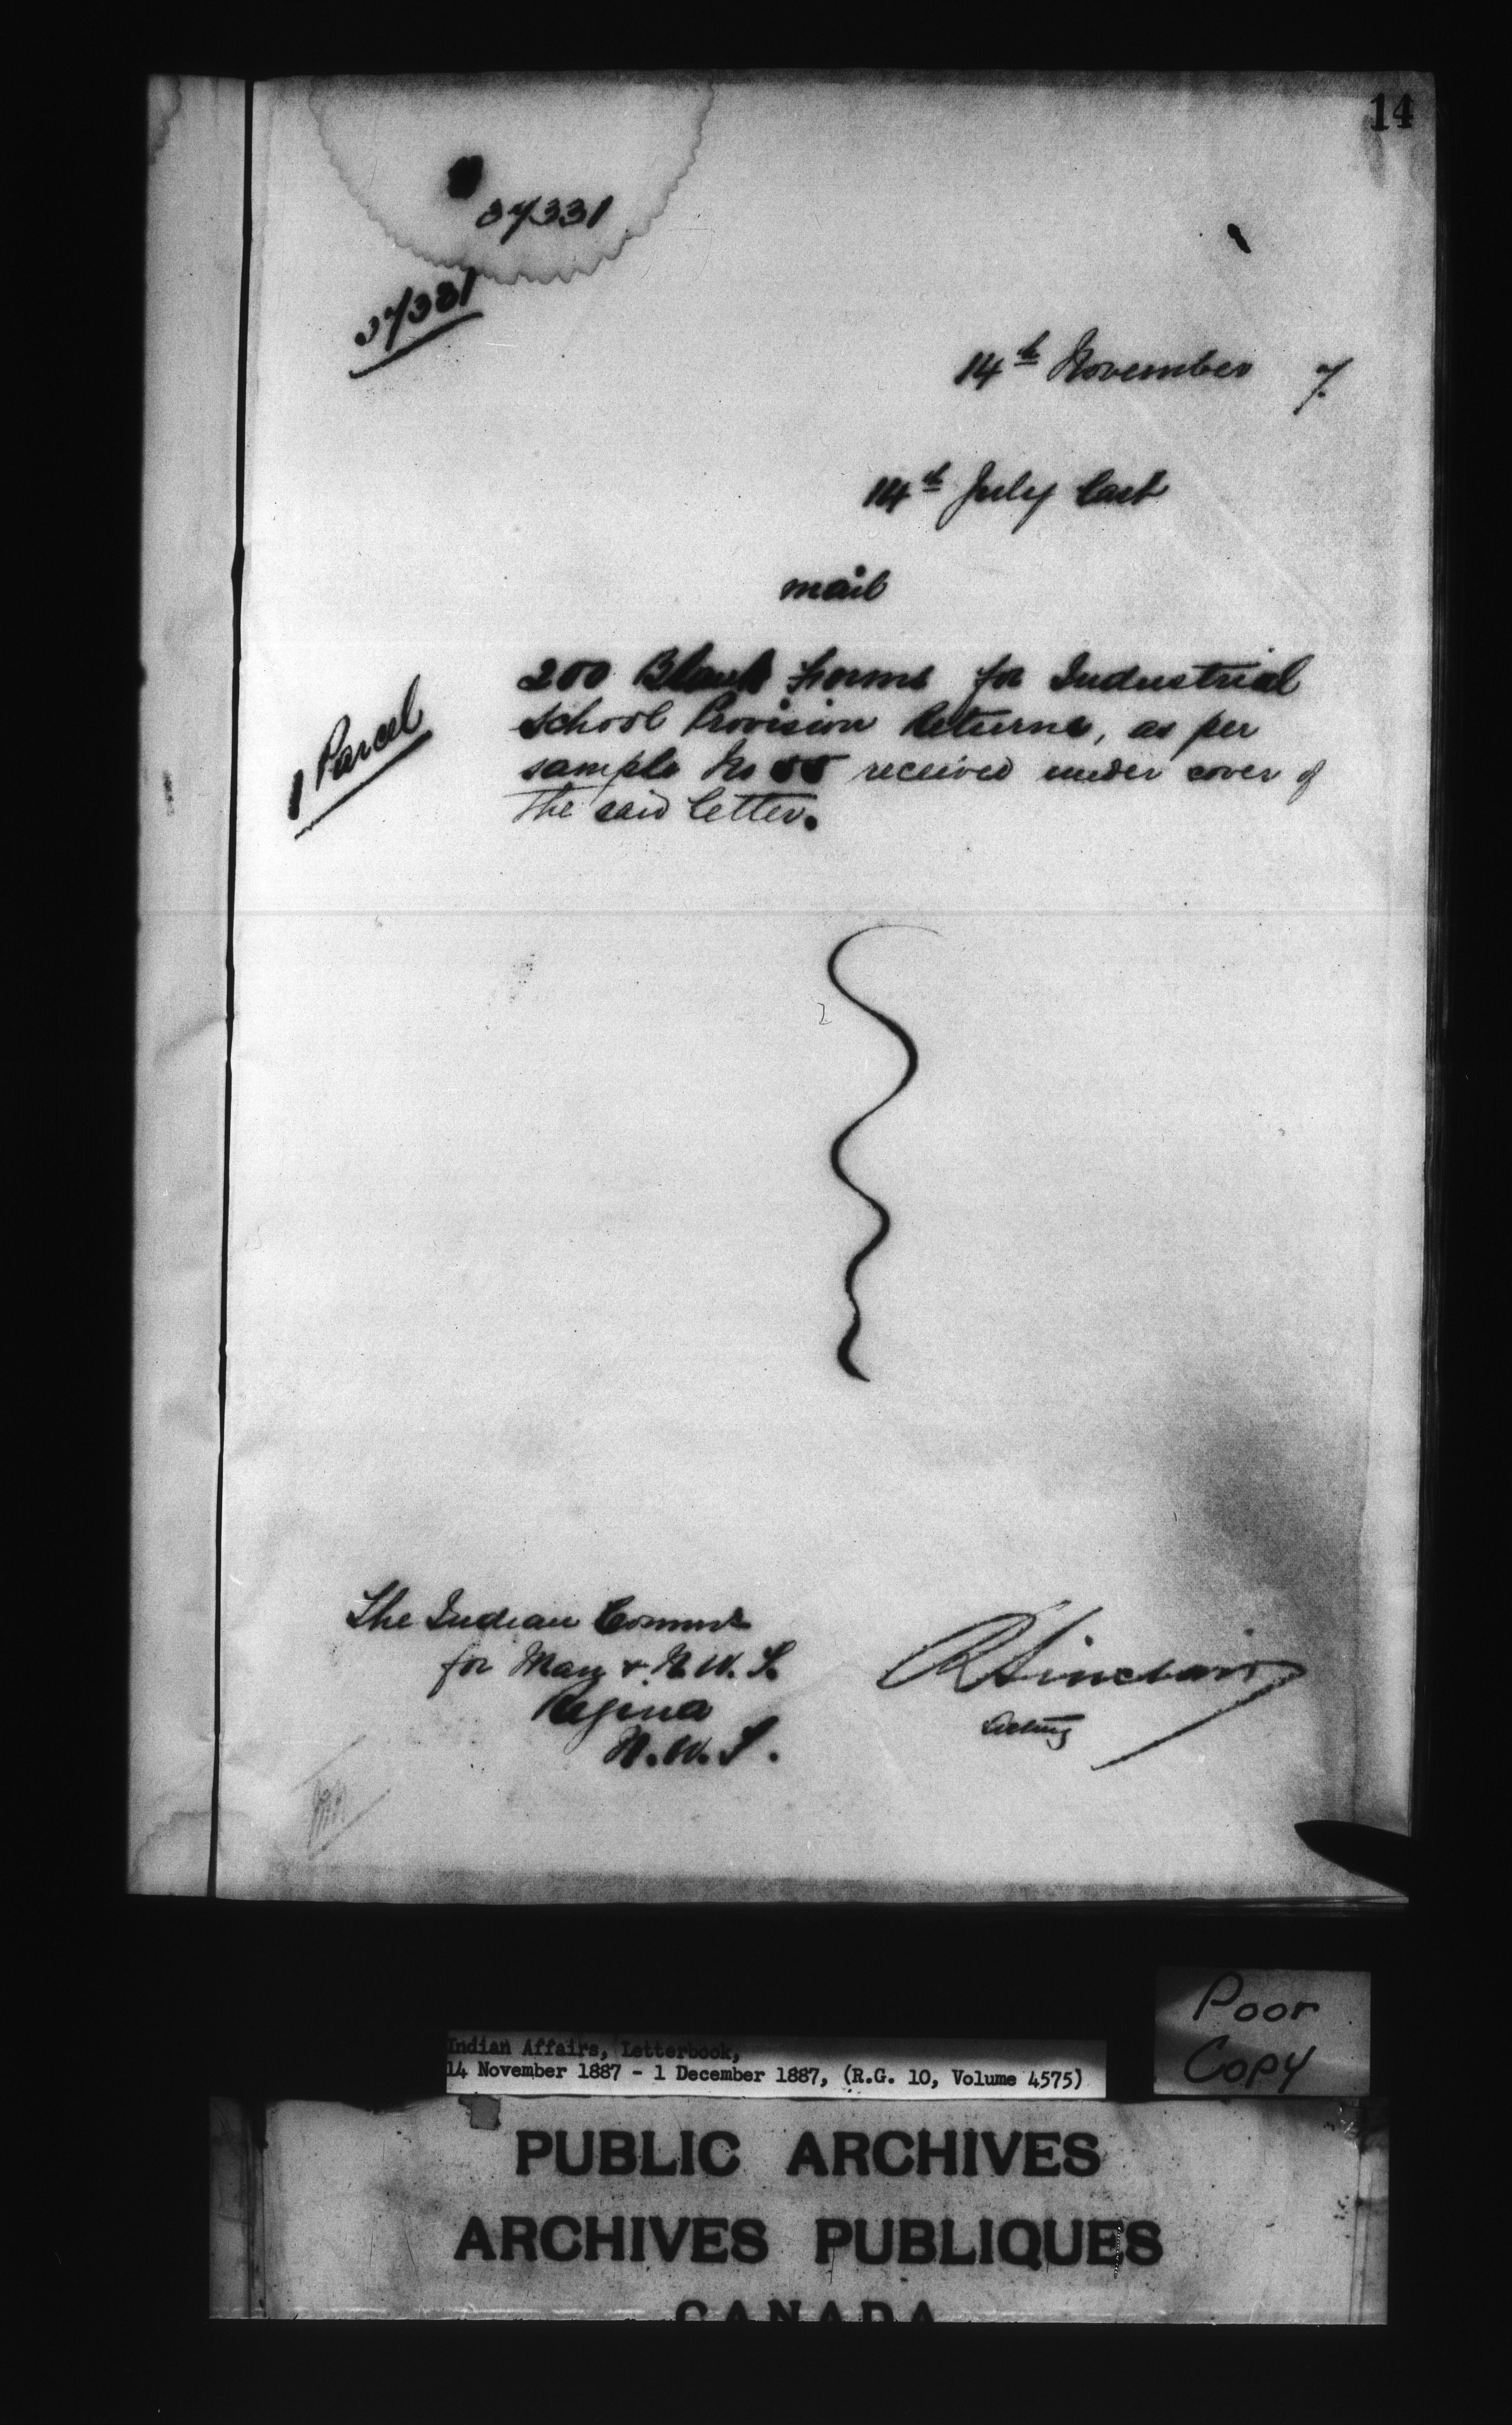 14
37331
37331
14th November 7.
14th July last
mail
1 Parcel
200 Blank Forms for Industrial
School Provision Returns, as per
sample No 55 received under cover of
the said letter.
The Indian Commr
for Man & N.W.T.
Regina
N.W.T.
R Sinclair
Acting
Poor
Copy
Indian Affairs, Letterbook,
14 November 1887 - 1 December 1887, (R.G. 10, Volume 4575)
PUBLIC ARCHIVES
ARCHIVES PUBLIQUES
CANADA